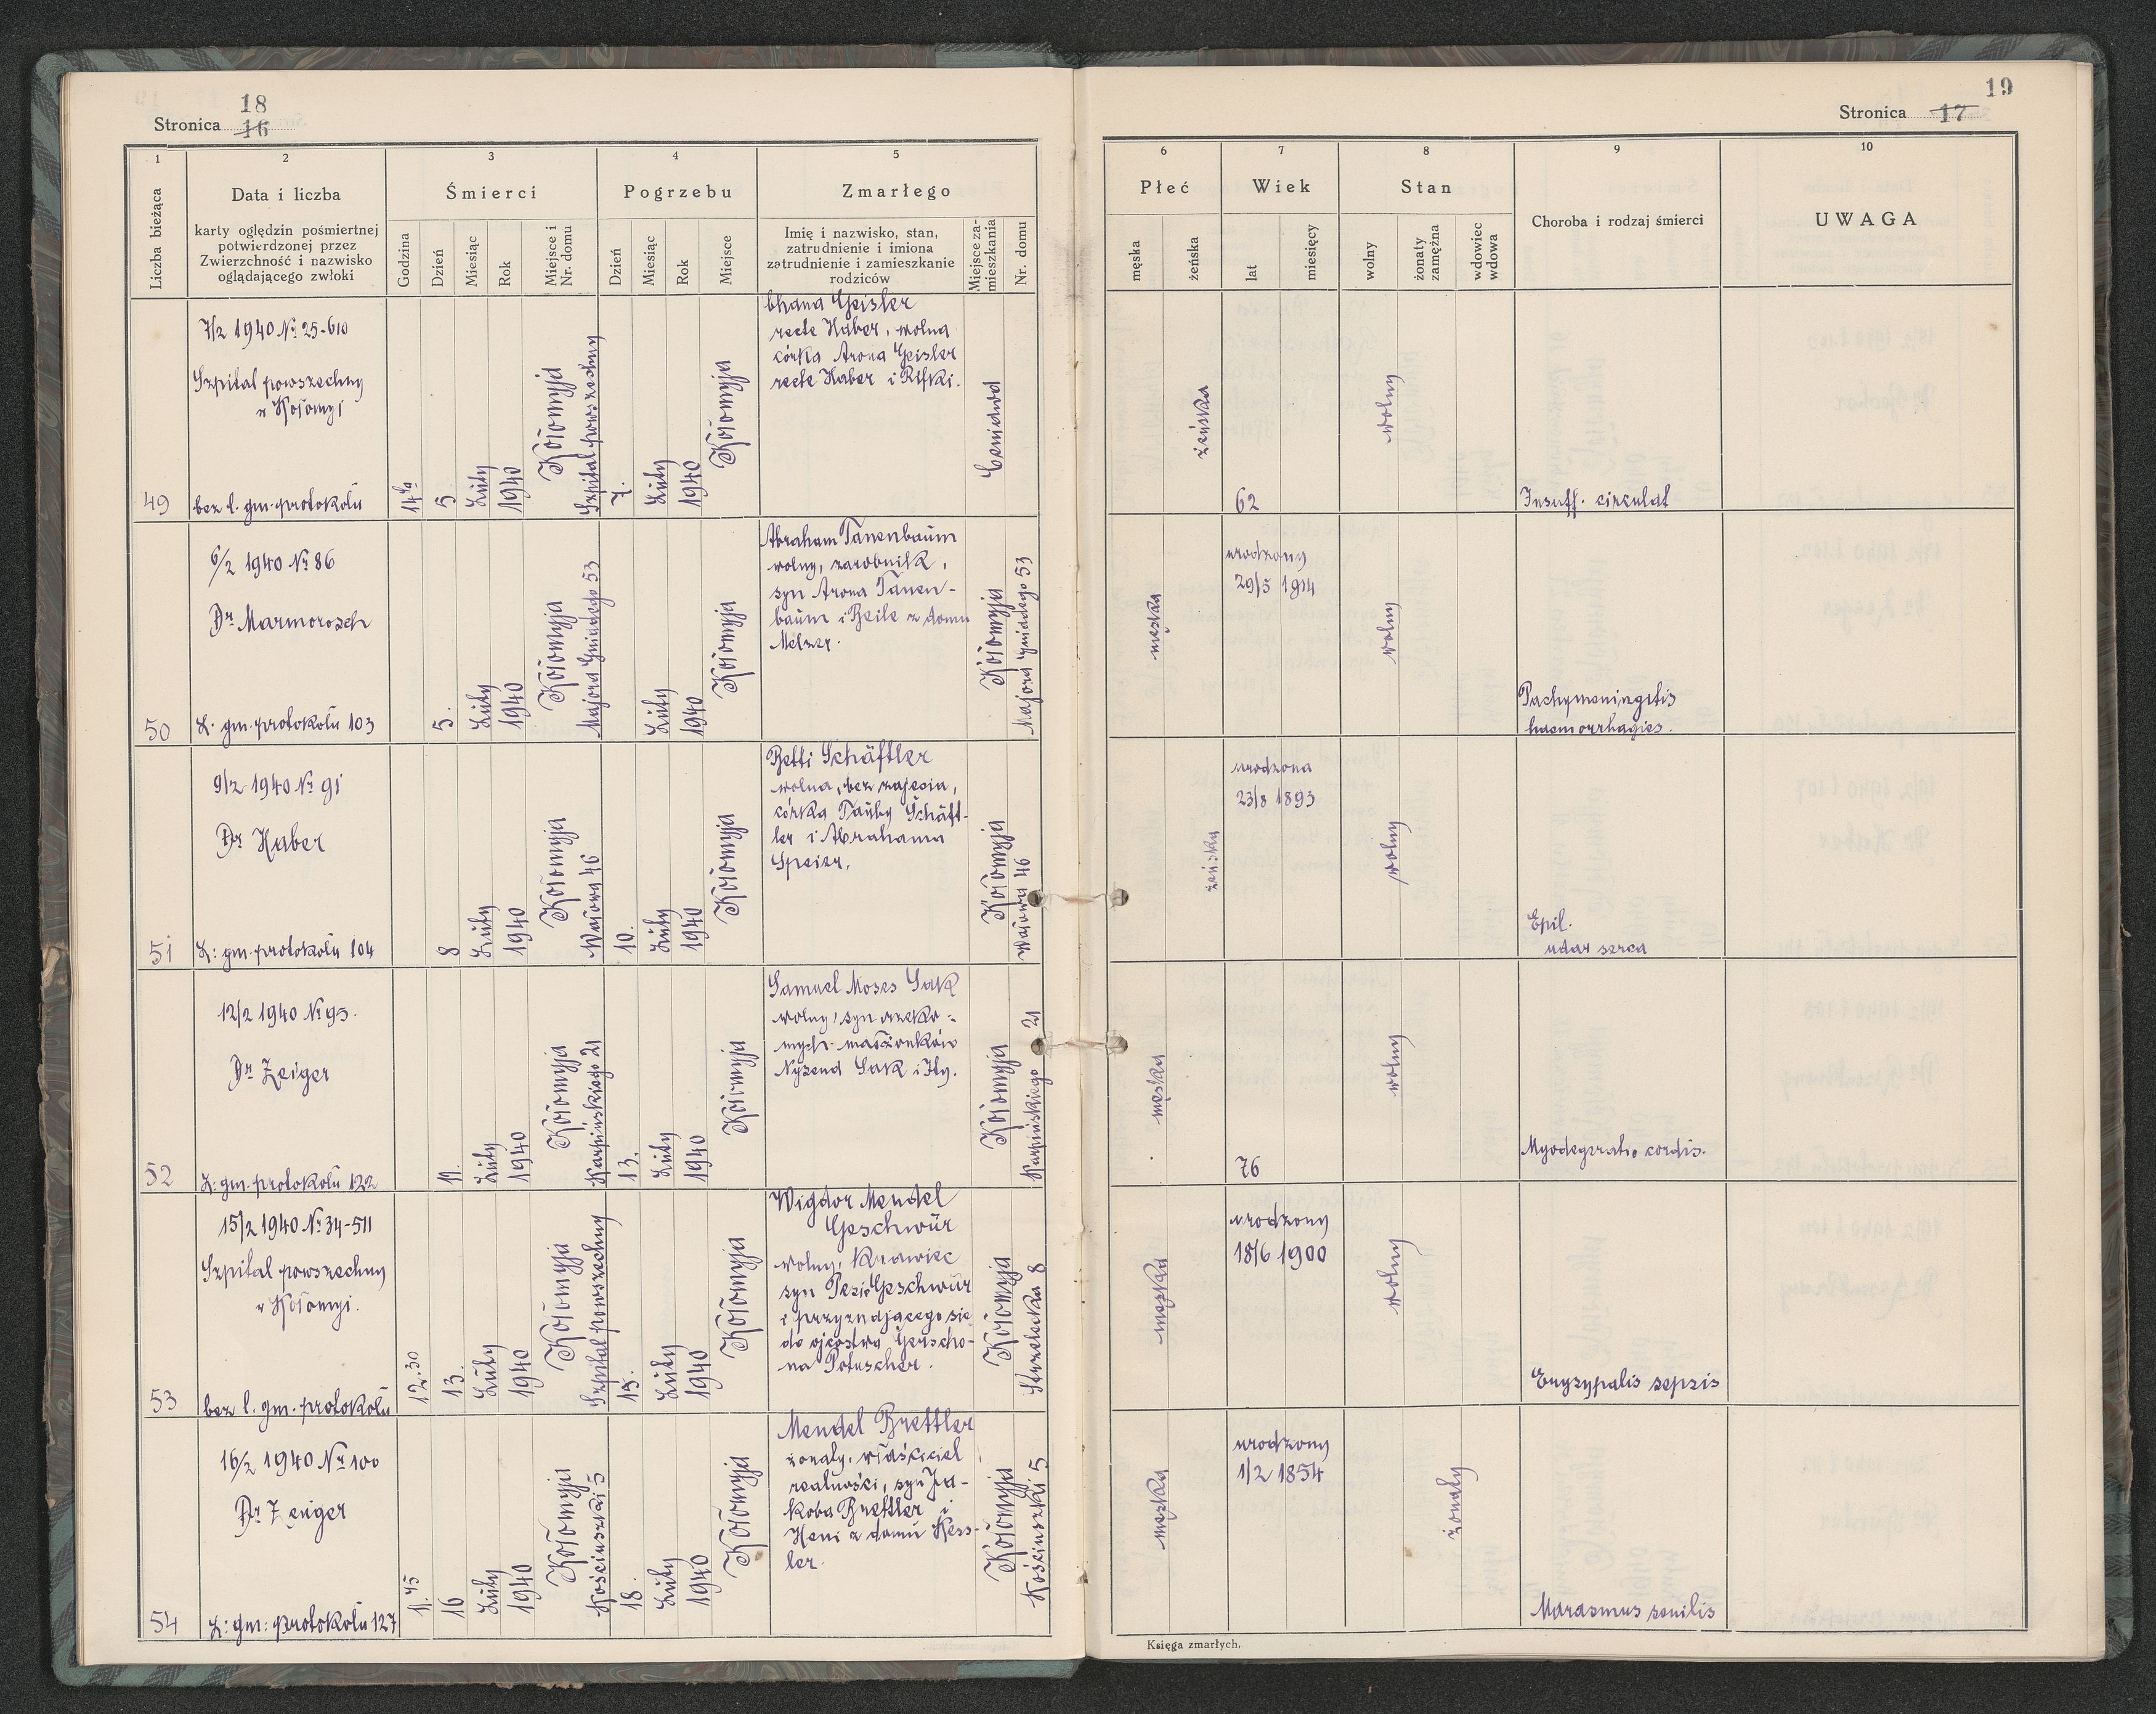 18
Stronica 16
1
2
3
4
5
Liczba bieżąca
Data i liczba
karty oględzin pośmiertnej
potwierdzonej przez
Zwierzchność i nazwisko
oglądającego zwłoki
Śmierci
Godzina
Dzień
Miesiąc
Rok
Miejsce i
Nr. domu
Pogrzebu
Dzień
Miesiąc
Rok
Miejsce
Zmarłego
Imię i nazwisko, stan,
zatrudnienie i imiona
zatrudnienie i zamieszkanie
rodziców
Miejsce za-
mieszkania
Nr. domu
49
7/2 1940 № 25-610
Szpital powszechny
w Kołomyi
bez l. gm. protokołu
14
5
Luty
1940
Kołomyja
Szpital powszechny
7.
Luty
1940
Kołomyja
Chana Geisler
recte Haber, wolna
córka Arona Geisler
recte Haber i Rifki.
50
6/2 1940 № 86
Dr Marmorosch
L. gm. protokołu 103
5.
Luty
1940
Kołomyja
53
Luty
1940
Kołomyja
Abraham Tanenbaum
wolny, zarobnik,
syn Arona Tanen-
baum i Beile z domu
Melzer.
Kołomyja
53
51
9/2 1940 № 91
Dr Haber
L: gm. protokołu 104
8
Luty
1940
Kołomyja
Wałowa 46
10.
Luty
1940
Kołomyja
Betti Schäftler
wolna, bez zajęcia,
córka Tauby Schäft-
ler i Abrahama
Speier.
Kołomyja
Wałowa 46
52
12/2 1940 № 93.
Dr Zeiger
L: gm. protokołu 122
11.
Luty
1940
Kołomyja
Karpińskiego 21
13.
Luty
1940
Kołomyja
Samuel Moses Sak
wolny, syn rzeko-
mych małżonków
Sak i Ity.
Kołomyja
Karpińskiego 21
53
15/2 1940 № 34-511
Szpital powszechny
w Kołomyi.
bez l. gm. protokołu
12.30
13.
Luty
1940
Kołomyja
Szpital powszechny
15.
Luty
1940
Kołomyja
Wigdor Mendel
Geschwür
wolny, krawiec
syn Pesi Geschwür
i przyznającego się
do ojcostwa Gerscho-
na Potuscher.
Kołomyja
Strzelecka 8
54
16/2 1940 № 100
Dr Zeiger
L: gm: protokołu 127
11.45
16
Luty
1940
Kołomyja
Kościuszki 5
18.
Luty
1940
Kołomyja
Mendel Brettler
żonaty, właściciel
realności, syn Ja-
koba Brettler i
Heni z domu Kess-
ler.
Kołomyja
Kościuszki 5
19
Stronica 17
6
7
8
9
10
Płeć
męska
żeńska
Wiek
lat
miesięcy
Stan
wolny
żonaty
zamężna
wdowiec
wdowa
Choroba i rodzaj śmierci
UWAGA
żeńska
62
wolny
Insuff. circulat
męska
urodzony
29/5 1914
wolny
Pachymeningitis
haemorrhagies.
żeńska
urodzona
23/8 1893
wolny
Epil.
udar serca
męska
76
wolny
cordis.
męska
urodzony
18/6 1900
wolny
sepsis
męska
urodzony
1/2 1854
żonaty
Marasmus senilis
Księga zmarłych.